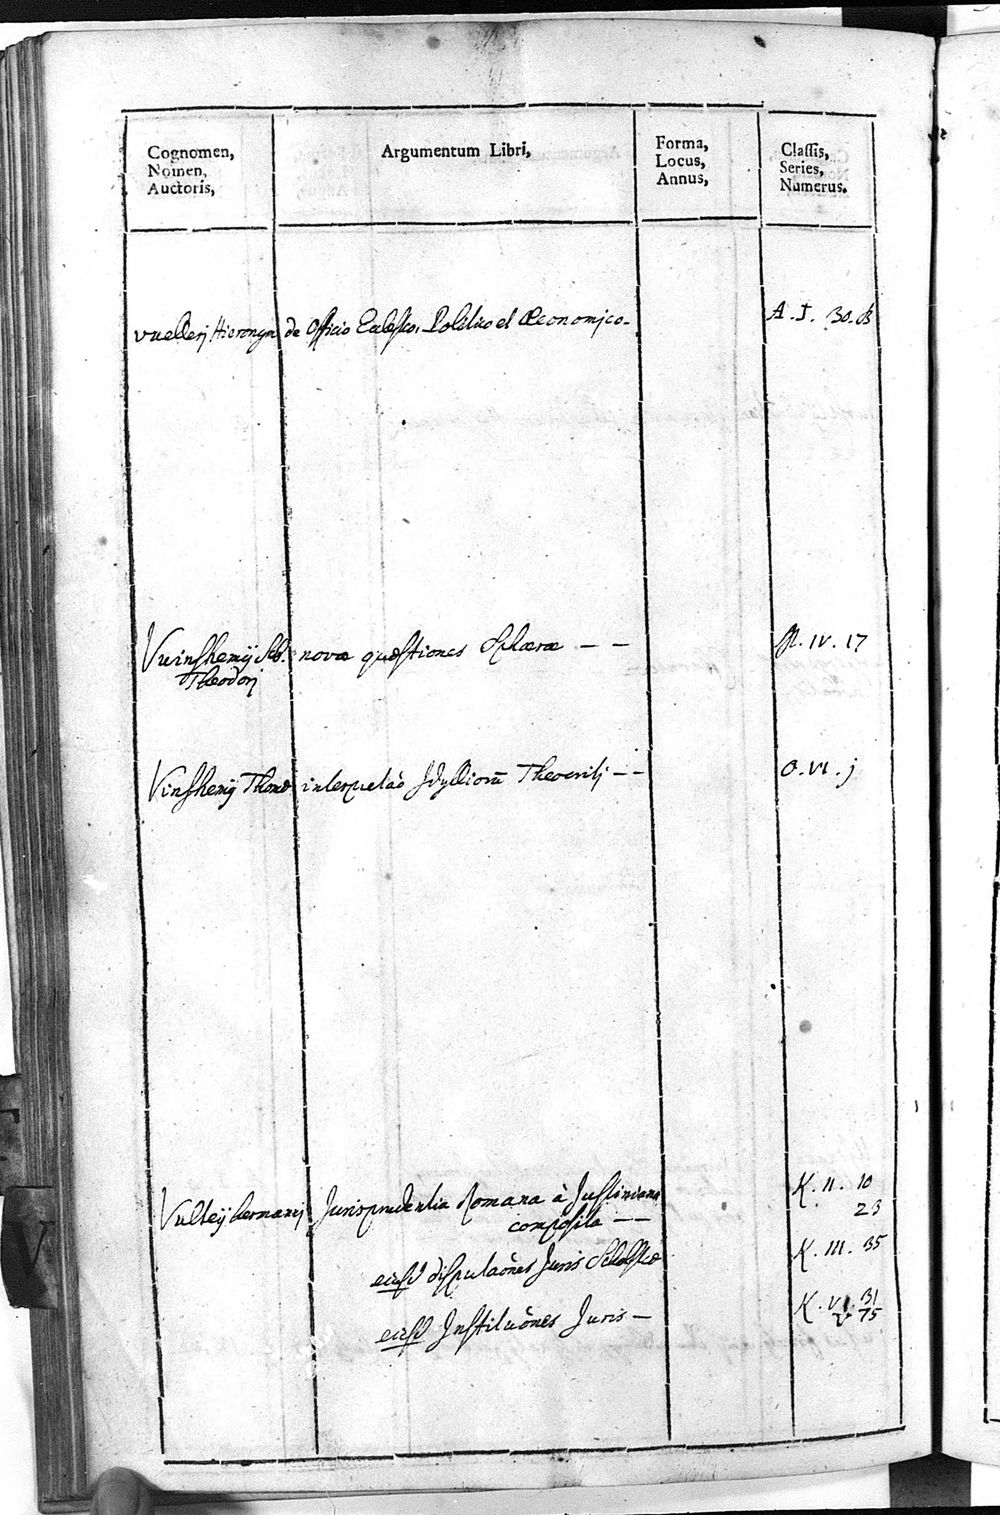 Cognomen,
Nomen,
Auctoris,
Argumentum Libri,
Forma,
Locus,
Annus,
Classis,
Series,
Numerus.
Vuellerj Hieronym de Officio Eccles̃co, Politico et Œconomico. A. I. 30.
Vuinshemij Seb. novæ quæstiones Sphæræ — — IV. 17
Theodorj
Vinshemij Thomæ interpretaõ Idylliorũ Theocritj — — O. VI. j
Vulteij Hermannj Jurisprudentia Romana à Justiniano K. II. 10
composita — — 23
eiusd disputaõnes Juris Scholasticæ K. III. 35
eiusd Institutiõnes Juris — K. VI. 31
V 75
V